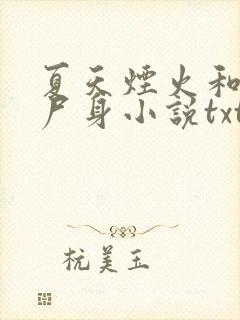 夏天煙火和
尸身小説txt
杭美玉